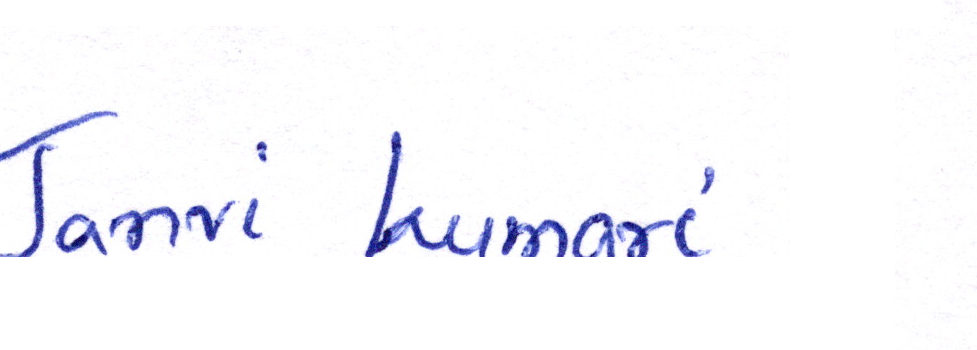 Janvi kumari